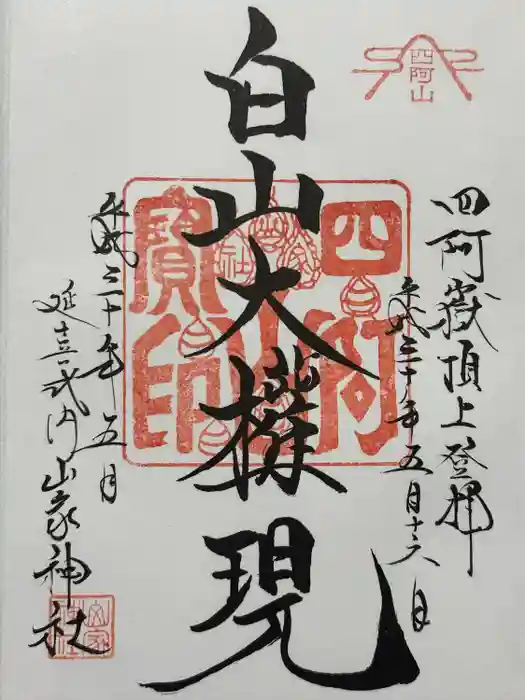 四阿山
四阿嶽頂上登拝
平成三十年五月十六日
白山大權現
四阿山
寶印
山家神社
平成三十年五月
延喜式内山家神社
山家神社